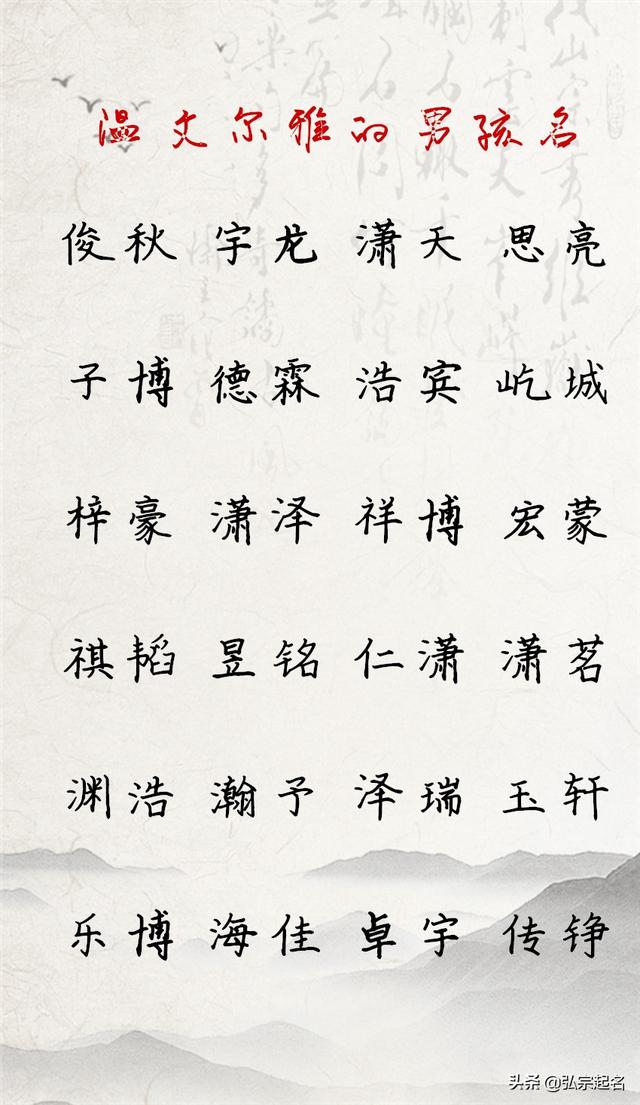 温文尔雅的男孩名
俊秋 宇龙 潇天 思亮
子博 德霖 浩宾 屹城
梓豪 潇泽 祥博 宏蒙
祺韬 昱铭 仁潇 潇茗
渊浩 瀚予 泽瑞 玉轩
乐博 海佳 卓宇 传铮
头条 @弘宗起名